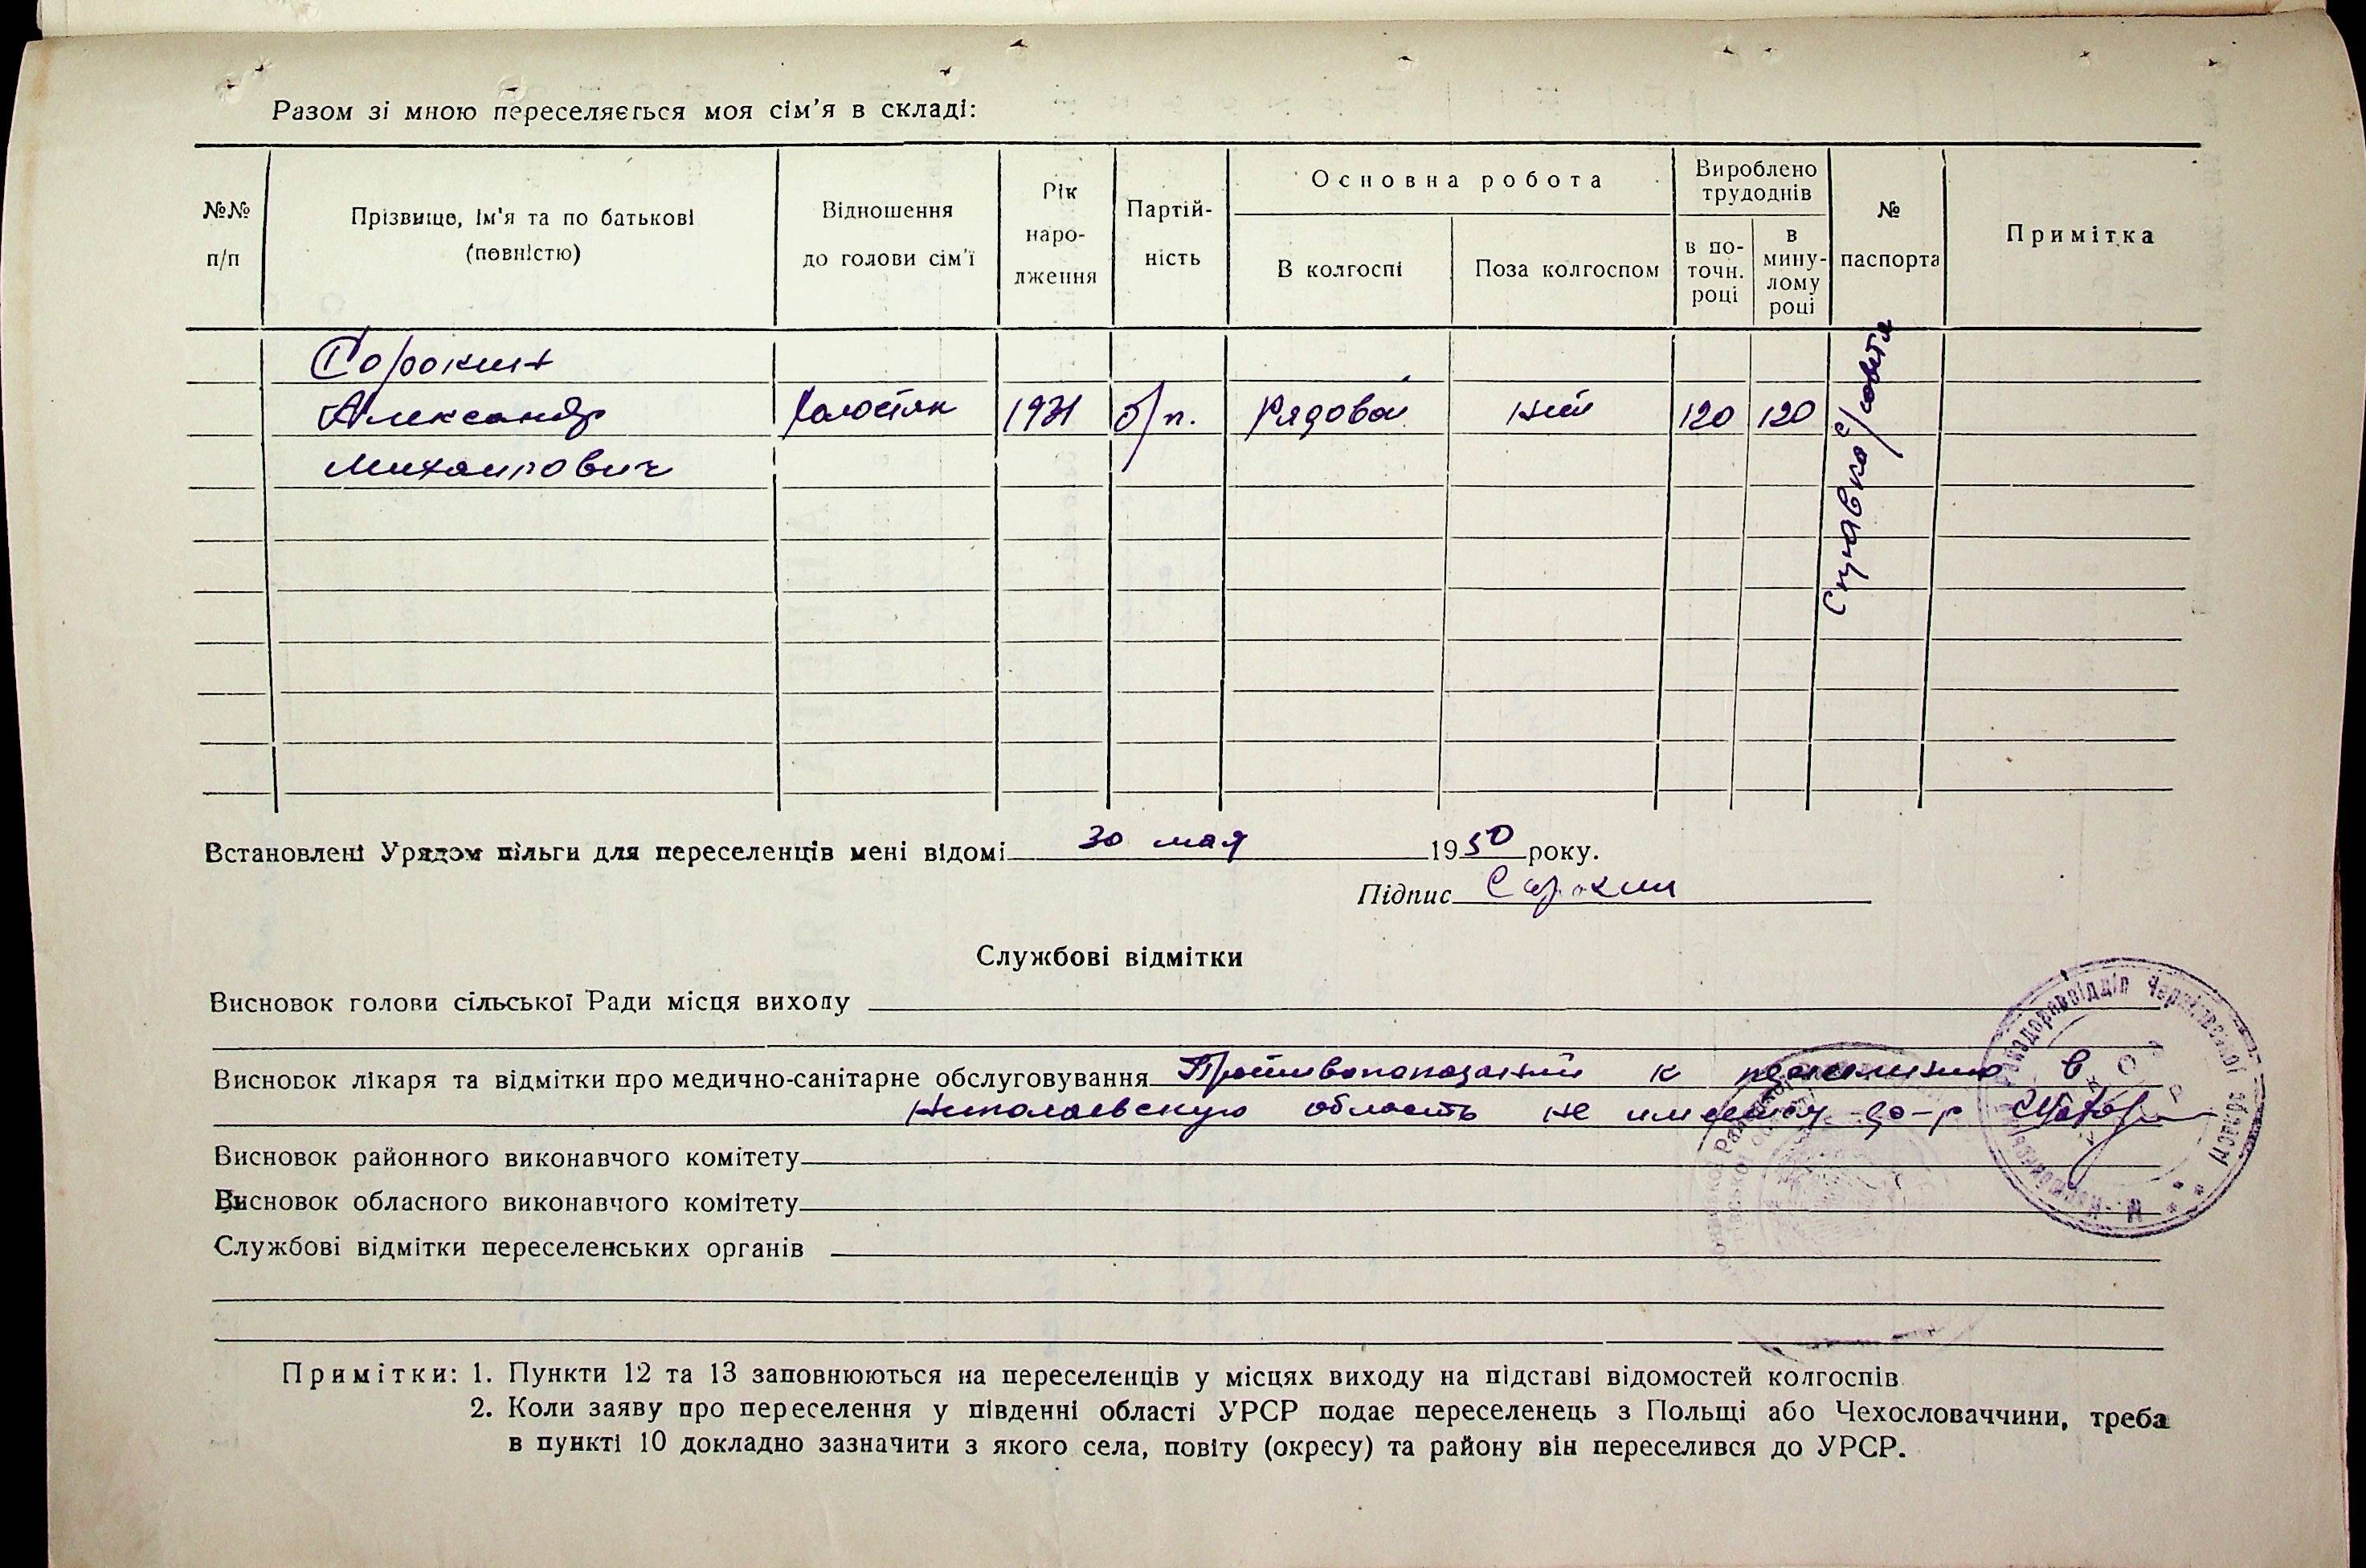 Разом зі мною переселяється моя сім'я в складі:
№№ п/п
Прізвище, ім'я та по батькові (повністю)
Відношення до голови сім'ї
Рік народження
Партійність
Основна робота
В колгоспі
Поза колгоспом
Вироблено трудоднів
в поточн. році
в минулому році
№ паспорта
Примітка
Сорокин
Александр Холостяк 1931 б/п. Рядовой нет 120 120 Справка с/совета
Михайлович
Встановлені Урядом пільги для переселенців мені відомі 30 мая 1950 року.
Підпис Сорокин
Службові відмітки
Висновок голови сільської Ради місця виходу
Висновок лікаря та відмітки про медично-санітарне обслуговування Противопоказаний к в
Николаевскую область не имеется д-р
Висновок районного виконавчого комітету
Висновок обласного виконавчого комітету
Службові відмітки переселенських органів
Примітки: 1. Пункти 12 та 13 заповнюються на переселенців у місцях виходу на підставі відомостей колгоспів
2. Коли заяву про переселення у південні області УРСР подає переселенець з Польщі або Чехословаччини, треба
в пункті 10 докладно зазначити з якого села, повіту (окресу) та району він переселився до УРСР.